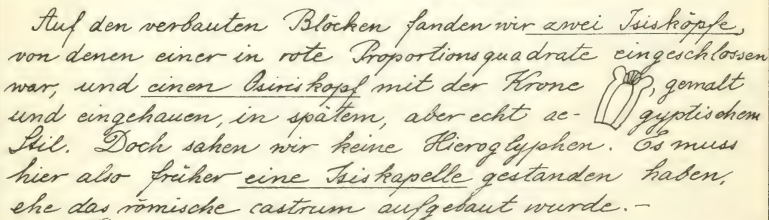 Auf den verbauten Blöcken fanden wir zwei Isisköpfe,
von denen einer in rote Proportionsquadrate eingeschlossen
war, und einen Osiriskopf mit der Krone , gemalt
und eingehauen, in spätem, aber echt ae- gyptischem
Stil. Doch sahen wir keine Hieroglyphen. Es muss
hier also früher eine Isiskapelle gestanden haben,
ehe das römische castrum aufgebaut wurde. -